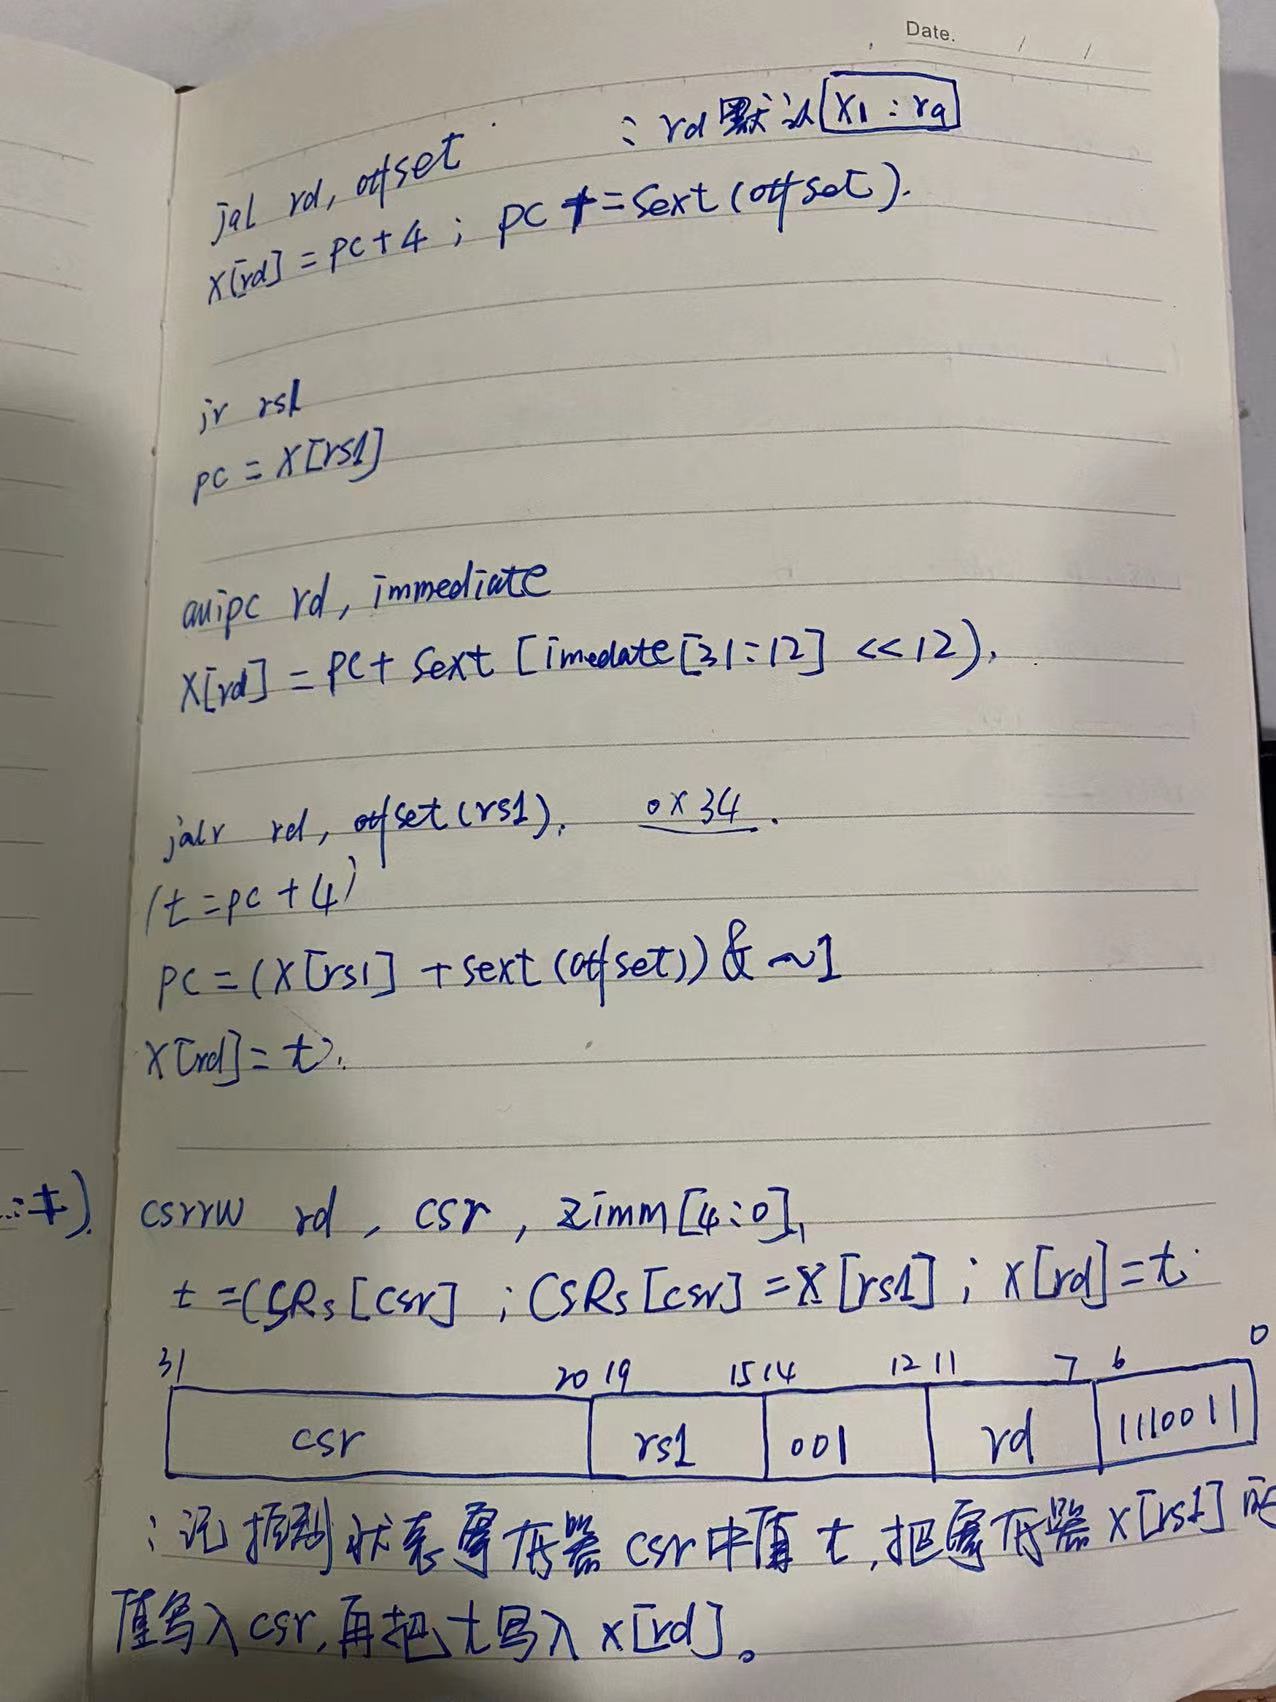 Date. / /
jal rd, offset : rd 默认 x1 : ra
x[rd] = pc+4 ; pc += sext(offset).
jr rs1
pc = x[rs1]
auipc rd, immediate
x[rd] = pc + sext [imedate[31:12] <<12).
jalr rd, offset(rs1). 0x34.
(t=pc+4)
pc = (x[rs1] + sext(offset)) & ~1
x[rd] = t.
csrrw rd, csr, zimm[4:0],
t = CSRs[csr] ; CSRs[csr] = x[rs1] ; x[rd] = t.
31 20 19 15 14 12 11 7 6 0
csr rs1 001 rd 1110011
: 记控制状态寄存器 csr 中值 t, 把寄存器 x[rs1] 的
值写入 csr, 再把 t 写入 x[rd]。